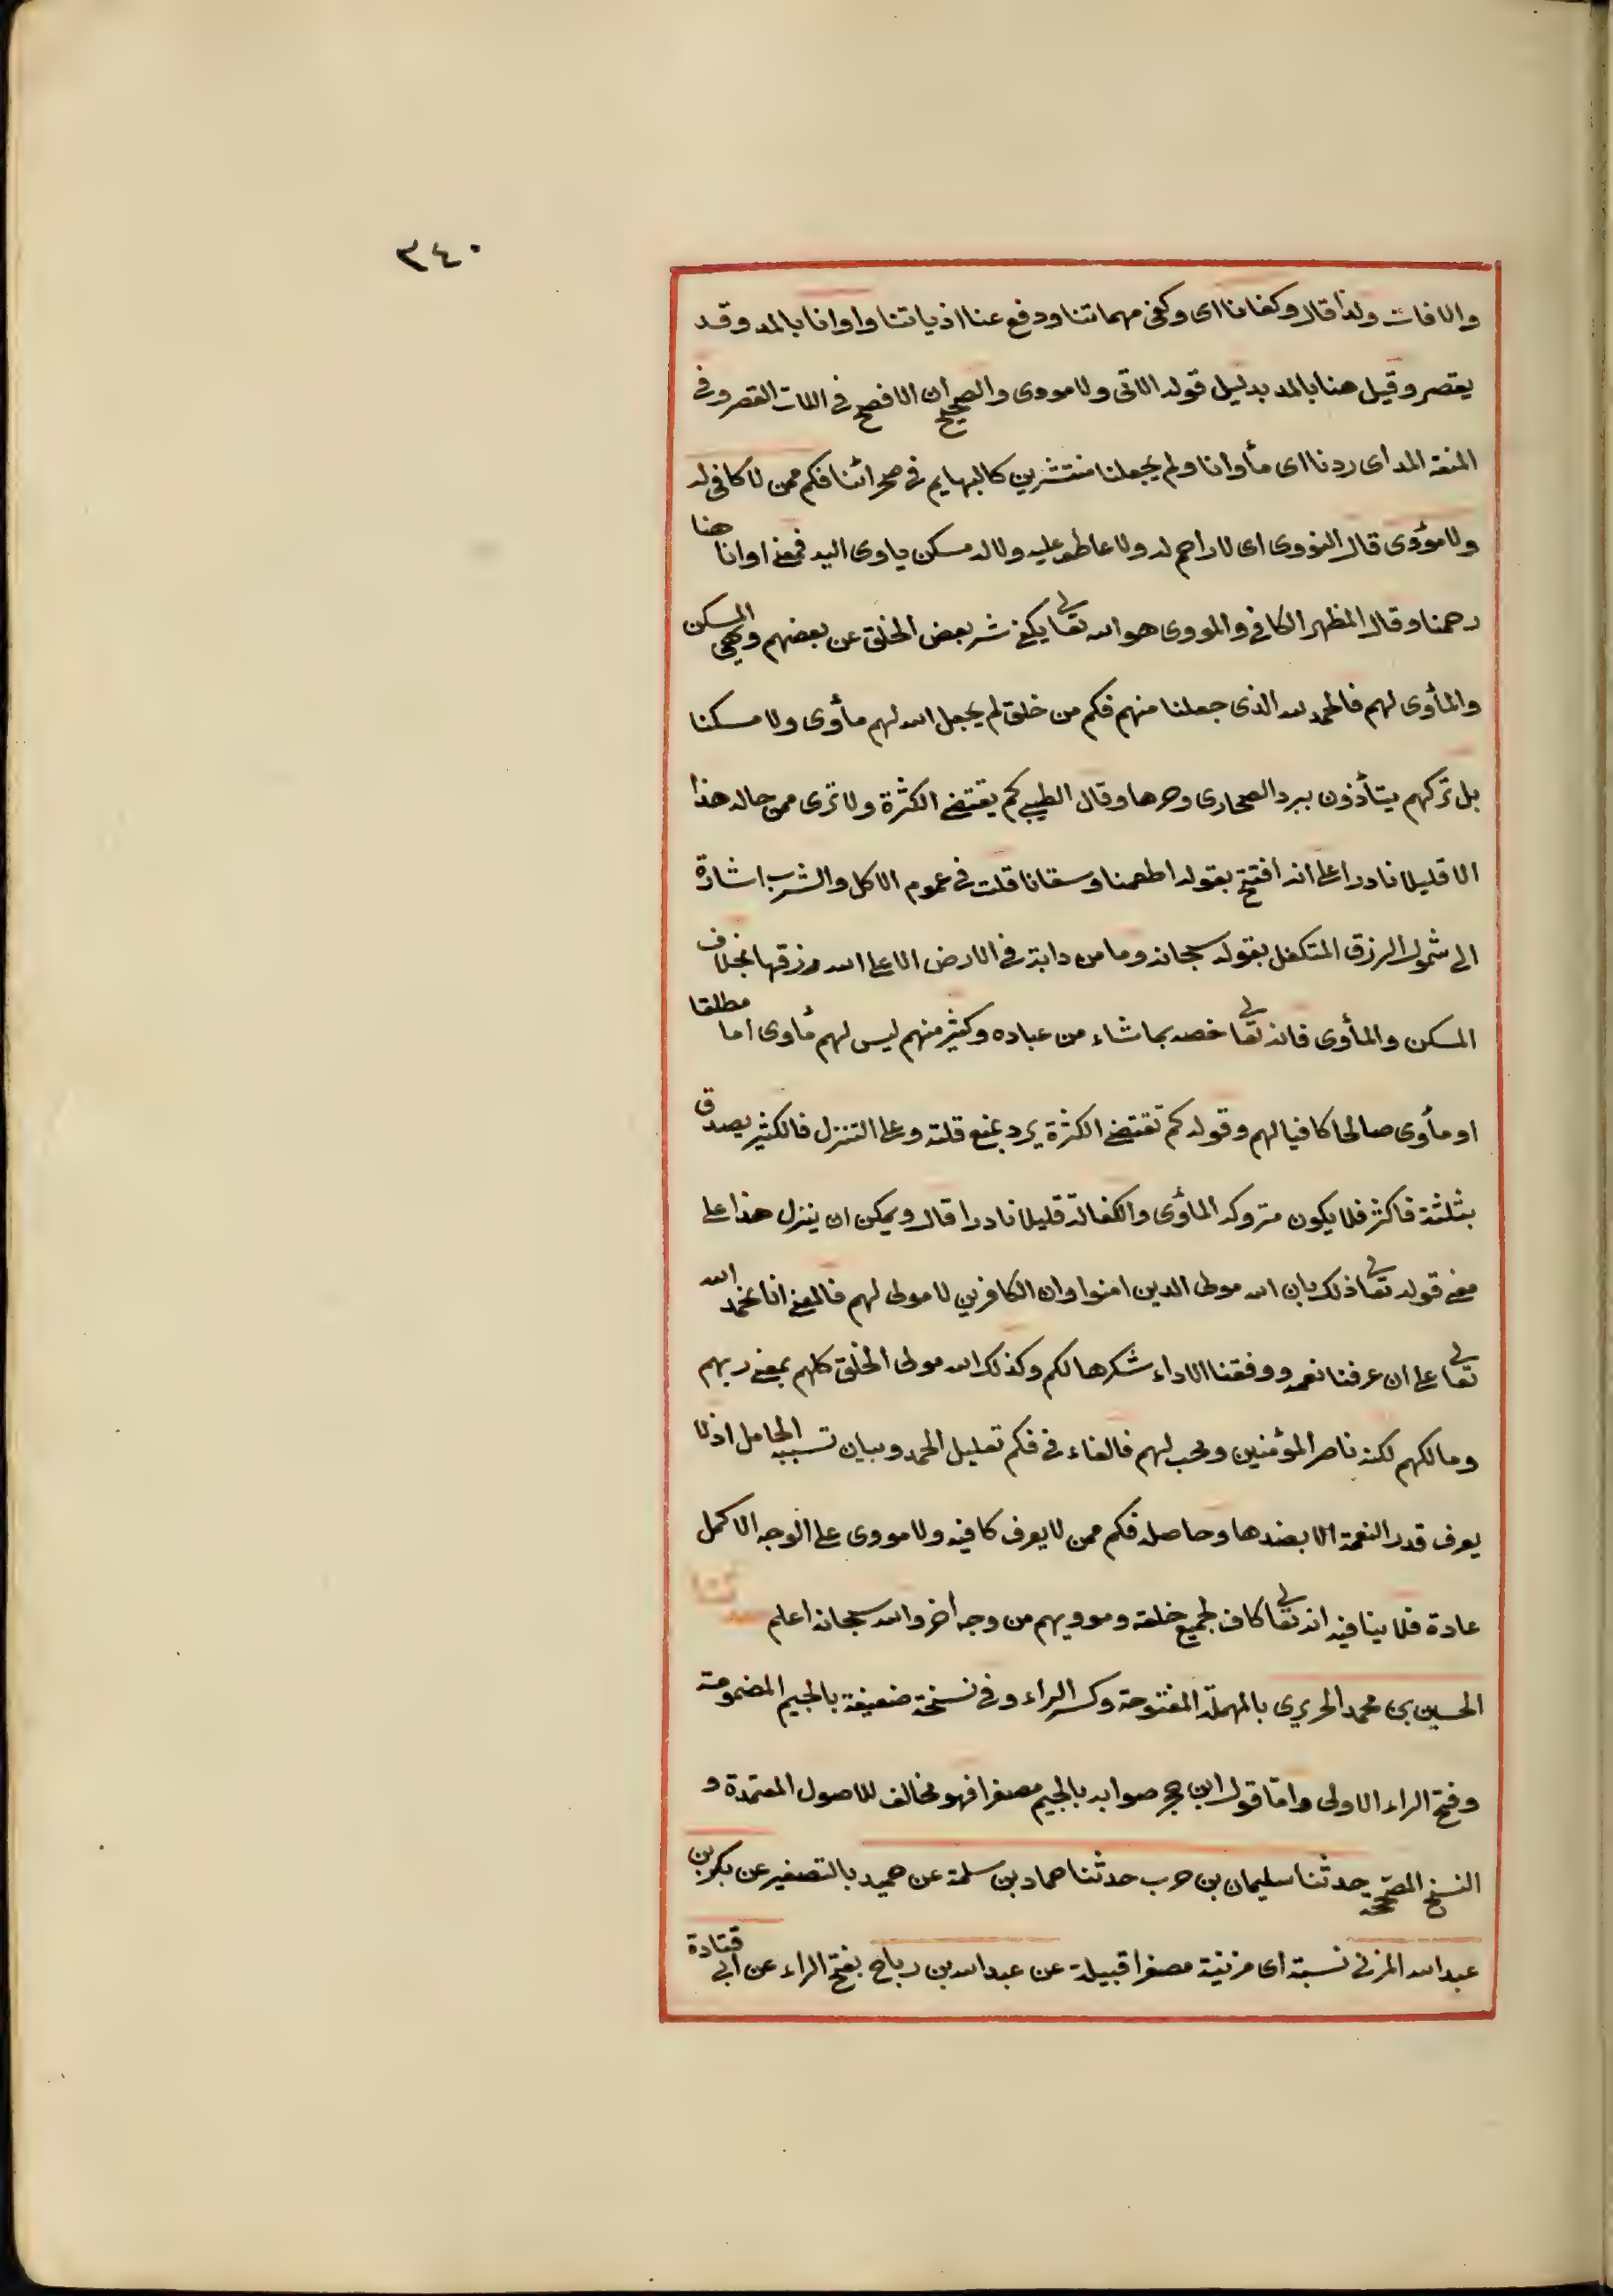 ٣٤٠
والافات ولذا قال وكفانا اى وكفى مهماتنا ودفع عنا اذياتنا واوانا بالمد وقد
يقصر وقيل هنا بالمد بدليل قوله الاتى ولا مووى والصحيح ان الافصح فى اللات القصر وفى
المتعد المد اى ردنا اى مأوانا ولم يجعلنا منتشرين كالبهايم فى صحرائنا فكم ممن لا كافى له
ولا مؤوى قال النووى اى لا راحم له ولا عاطف عليه ولا له مسكن ياوى اليه فمعنى اوانا هنا
رحمنا وقال المظهر الكافى والمووى هو الله تعالى يكفى شر بعض الخلق عن بعضهم ويهيئ المسكن
والمأوى لهم فالحمد لله الذى جعلنا منهم فكم من خلق لم يجعل الله لهم مأوى ولا مسكنا
بل تركهم يتأذون ببرد الصحارى وحرها وقال الطيبى كم يقتضى الكثرة ولا ترى ممن حاله هذا
الا قليلا نادرا على انه افتتح بقوله اطعمنا وسقانا قلت فى عموم الاكل والشرب اشارة
الى شمول الرزق المتكفل بقوله سبحانه وما من دابة فى الارض الا على الله رزقها بخلاف
المسكن والمأوى فانه تعالى خصه بما شاء من عباده وكثير منهم ليس لهم مأوى اما مطلقا
او مأوى صالحا كافيا لهم وقوله كم تقتضى الكثرة يرد بمنع قلته وعلى التنزل فالكثير يصدق
بثلثة فاكثر فلا يكون متروك المأوى والكفالة قليلا نادرا قال ويمكن ان ينزل هذا على
معنى قوله تعالى ذلك بان الله مولى الذين امنوا وان الكافرين لا مولى لهم فالمعنى انا نحمد الله
تعالى على ان عرفنا نعمه ووفقنا لاداء شكرها لكم وكذلك الله مولى الخلق كلهم بمعنى ربهم
ومالكهم لكنه ناصر المؤمنين ومحب لهم فالفاء فى فكم تعليل الحمد وبيان تسبب الحامل اذ لا
يعرف قدر النعمة الا بضدها وحاصله فكم ممن لا يعرف كافيه ولا مووى على الوجه الاكمل
عادة فلا ينافيه انه تعالى كاف لجميع خلقه وموويهم من وجه اخر والله سبحانه اعلم
الحسين بن محمد الحريرى بالمهملة المفتوحة وكسر الراء وفى نسخة ضعيفة بالجيم المضمومة
وفتح الراء الاولى واما قول ابن حجر صوابه بالجيم مصغرا فهو مخالف للاصول المعتمدة و
النسخ المصححة حدثنا سليمان بن حرب حدثنا حماد بن سلمة عن حميد بالتصغير عن بكر بن
عبد الله المزنى نسبة اى مزنية مصغرا قبيلة عن عبد الله بن رباح بفتح الراء عن ابى قتادة